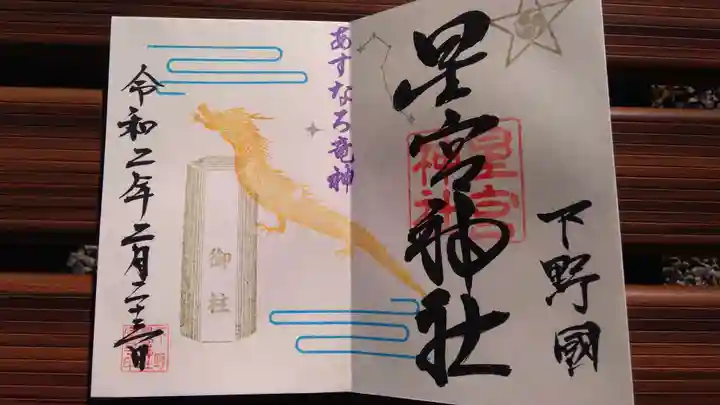 下野國
星宮神社
星宮神社
あすなろ竜神
御柱
令和二年二月二十三日